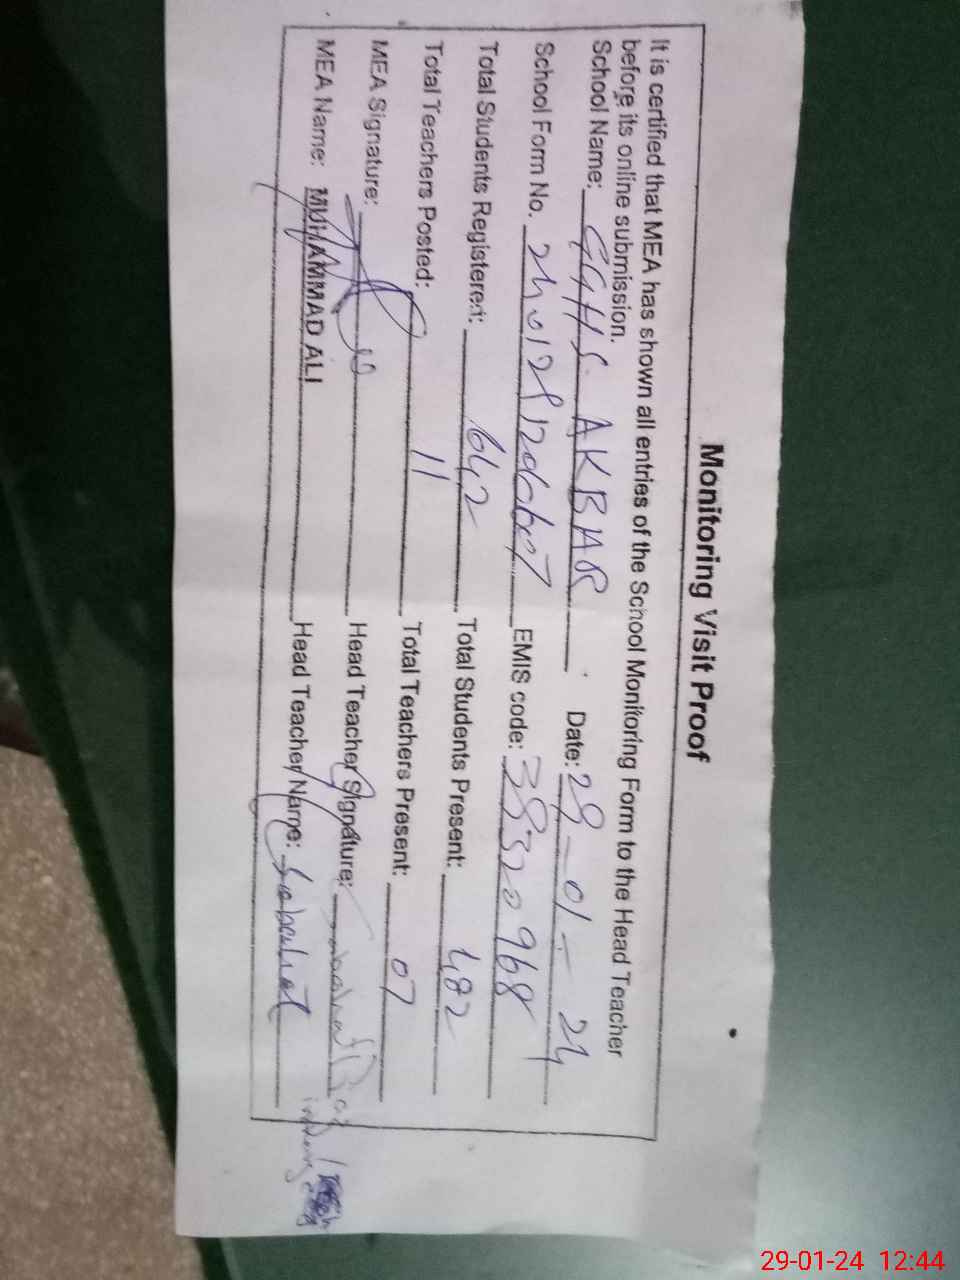 Monitoring Visit Proof
It is certified that MEA has shown all entries of the School Monitoring Form to the Head Teacher
before its online submission.
School Name: GGHS. AKBAR Date: 29-01-24
School Form No. EMIS code: 38320968
Total Students Registered: 642 Total Students Present: 482
Total Teachers Posted: 11 Total Teachers Present: 07
MEA Signature: Head Teacher Signature:
MEA Name: MUHAMMAD ALI Head Teacher Name:
29-01-24 12:44